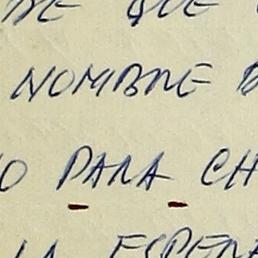 DE QUE
NOMBRE
O PARA CH
LA ESPERA